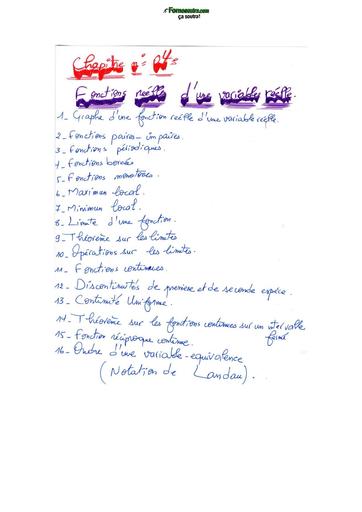 Fomesoutra.com
ça soutra!
Chapitre n°: 04
Fonctions réelle d'une variable réelle.
1- Graphe d'une fonction réelle d'une variable réelle.
2- Fonctions paires - impaires.
3- Fonctions périodiques.
4- Fonctions bornées
5- Fonctions monotones.
6- Maximum local.
7- Minimum local.
8- Limite d'une fonction.
9- Théorème sur les limites
10- Opérations sur les limites.
11- Fonctions continues.
12- Discontinuités de première et de seconde espèce.
13- Continuité Uniforme.
14- Théorème sur les fonctions continues sur un intervalle
fermé
15- Fonction réciproque continue.
16- Ordre d'une variable - equivalence
(Notation de Landau).